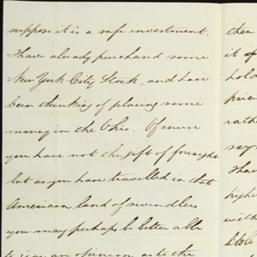 suppose it is a safe investment.
I have already purchased some
New York City Stock, and have
been thinking of placing some
money in the Ohio. Of course
you have not the gift of foresight
but as you have travelled in that
American land of swindlers
you may perhaps be better able
to give an opinion as to the
then
it of
hold
price
rath
say
I have
higher
with